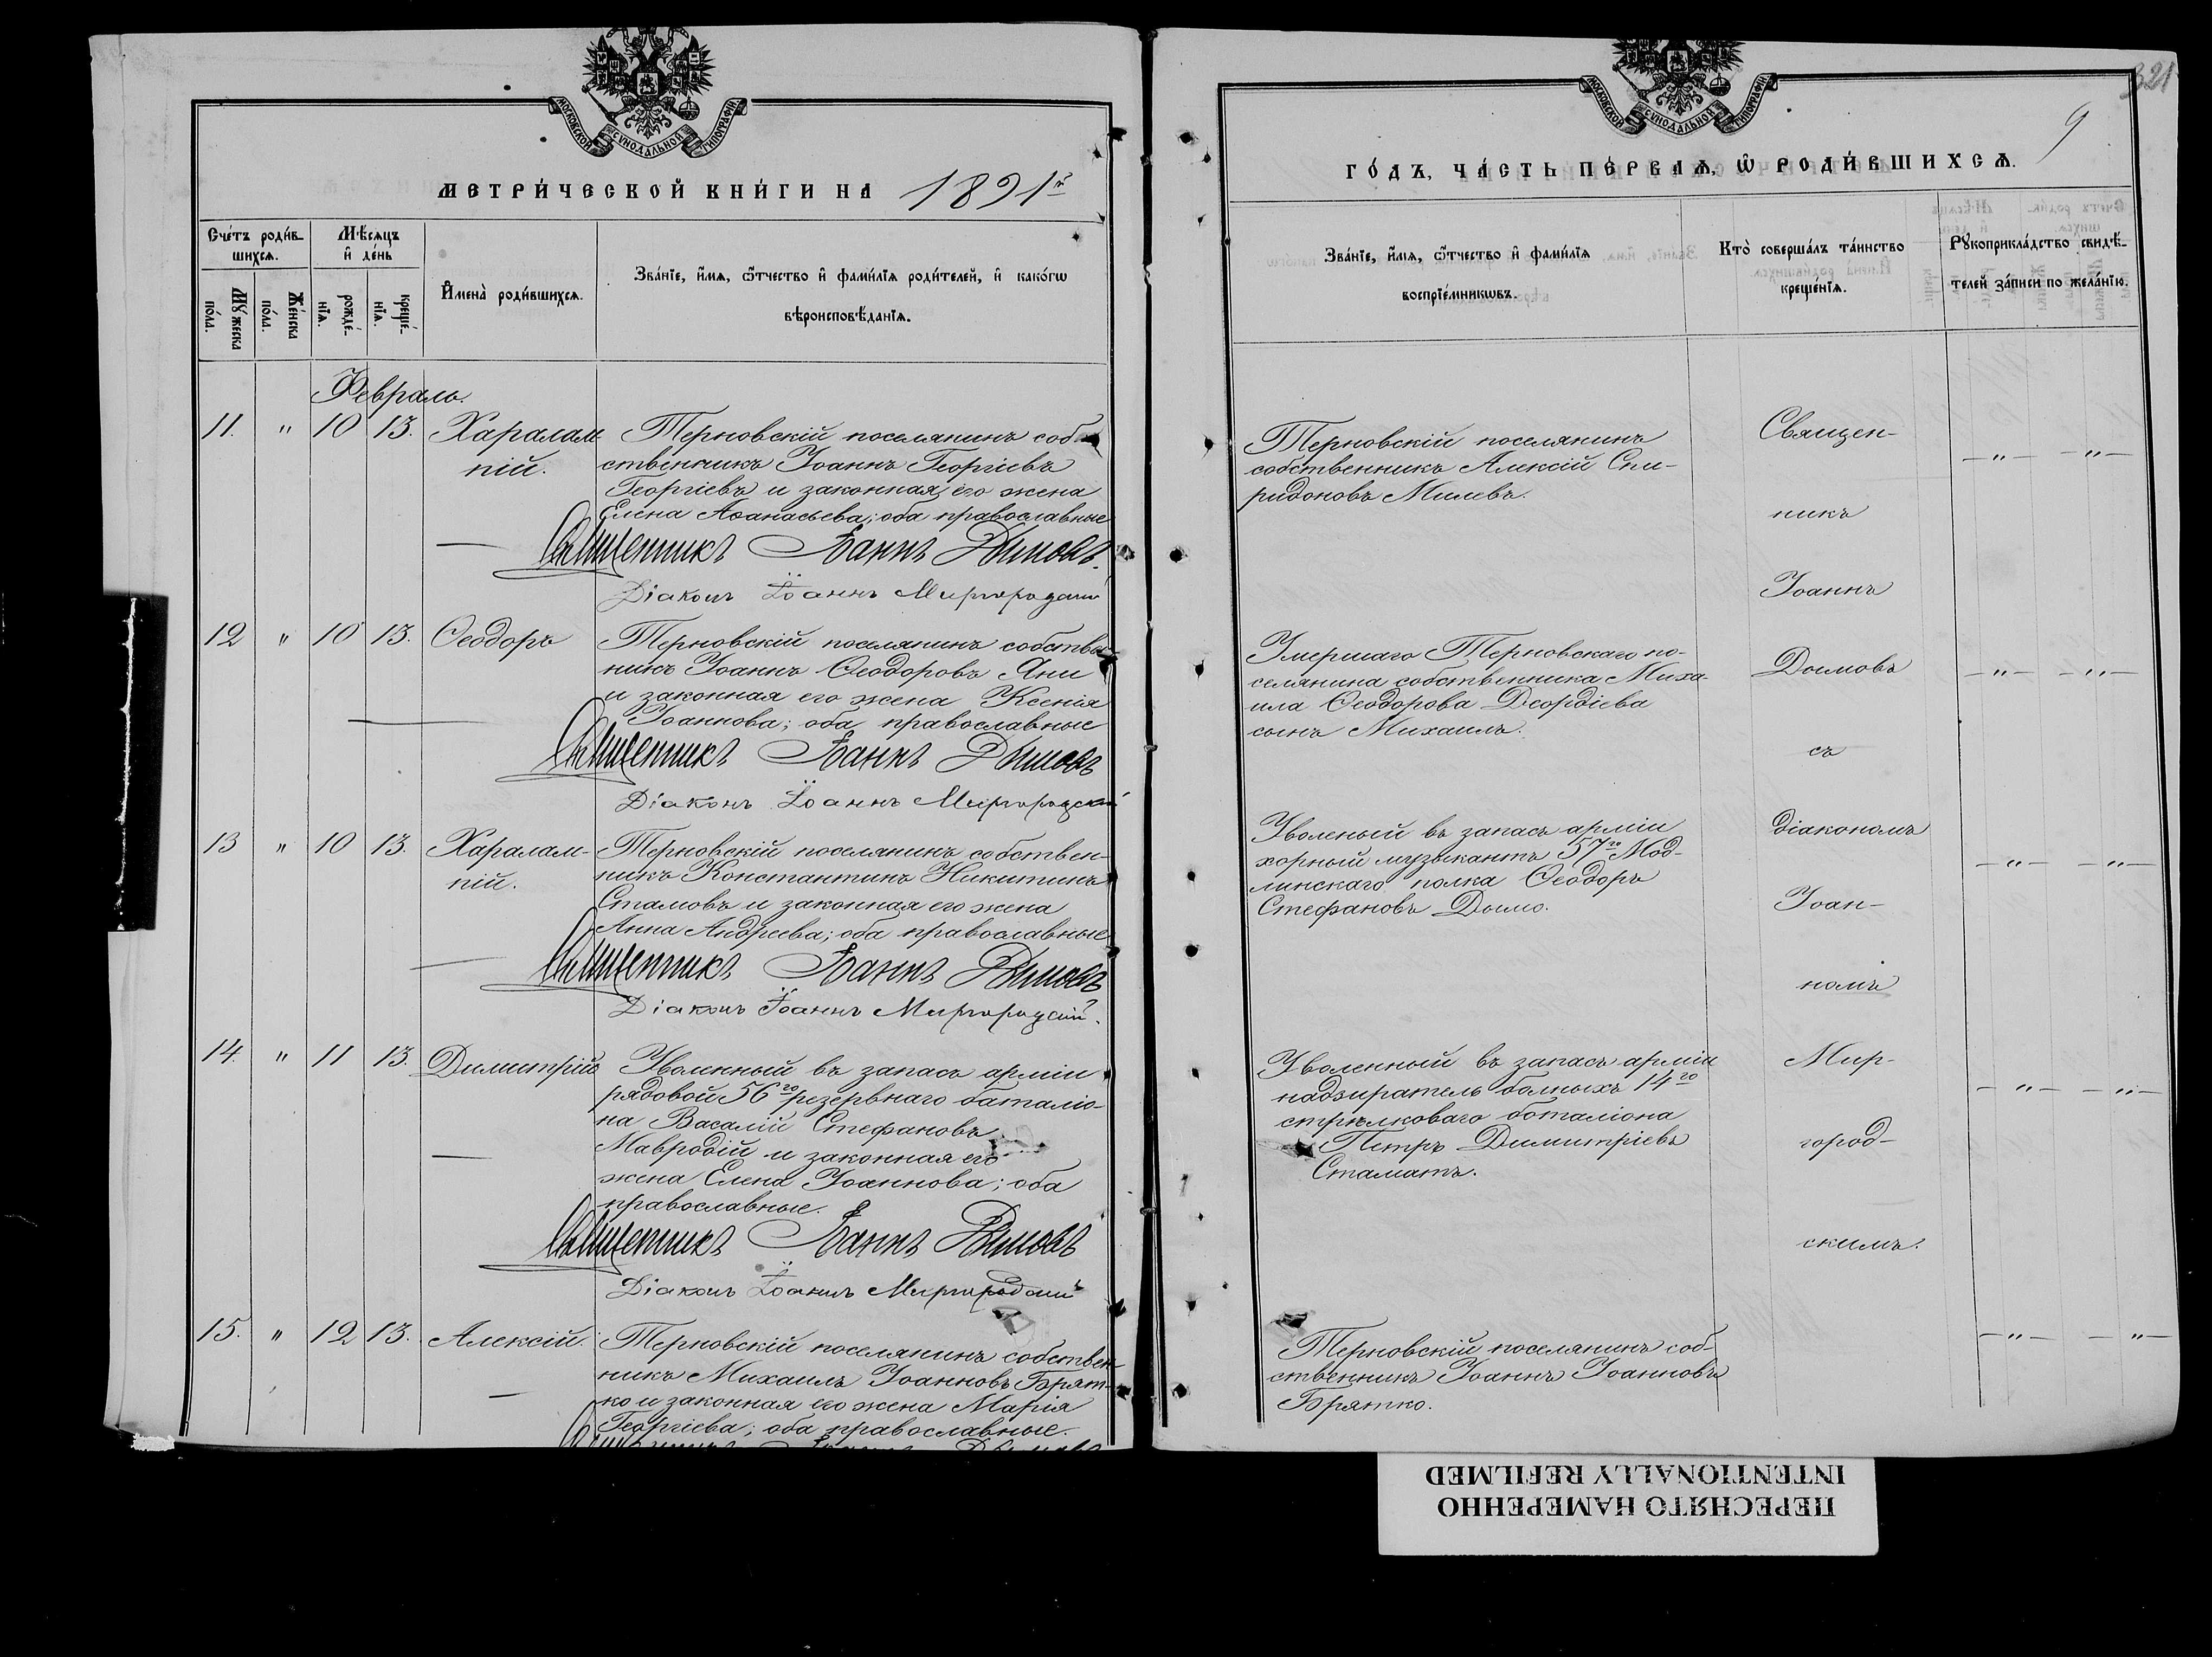 МОСКОВСКОЙ СУНОДАЛЬНОЙ ТИПОГРАФІИ
МЕТРИ́ЧЕСКОЙ КНИ́ГИ НА 1891й
Сче́тъ роди́в-
шихсѧ.
Мѣ́сяцъ
и҆ де́нь
Мꙋ́жеска
по́ла.
Же́нска
по́ла.
рожде́-
нїѧ.
креще́-
нїѧ.
И҆мена̀ роди́вшихсѧ.
Зва́нїе, и҆́мѧ, ѻ҆́тчество и҆ фами́лїѧ роди́телей, и҆ како́гѡ
вѣроисповѣ́данїѧ.
Февраль.
11. " 10 13. Харалам-
пій.
Терновскій поселянинъ соб-
ственникъ Іоаннъ Георгіевъ
Георгіевъ и законная его жена
Елена Аѳанасьева; оба православные
Священникъ Іоаннъ Дымовъ.
Діаконъ Іоаннъ Миргородскій
12 " 10 13. Ѳеодоръ
Терновскій поселянинъ собствен-
никъ Іоаннъ Ѳеодоровъ Яни
и законная его жена Ксенія
Іоаннова; оба православные
Священникъ Іоаннъ Дымовъ
Діаконъ Іоаннъ Миргородскій
13 " 10 13. Харалам-
пій.
Терновскій поселянинъ собствен-
никъ Константинъ Никитинъ
Стамовъ и законная его жена
Анна Андреева; оба православные
Священникъ Іоаннъ Дымовъ
Діаконъ Іоаннъ Миргородскій.
14. " 11 13. Димитрій
Уволенный въ запасъ арміи
рядовой 56го резервнаго баталіо-
на Василій Стефановъ
Мавродій и законная его
жена Елена Іоаннова; оба
православные.
Священникъ Іоаннъ Дымовъ
Діаконъ Іоаннъ Миргородскій
15. " 12 13. Алексій.
Терновскій поселянинъ собствен-
никъ Михаилъ Іоанновъ Брят-
ко и законная его жена Марія
Георгіева; оба православные.
321
9
МОСКОВСКОЙ СУНОДАЛЬНОЙ ТИПОГРАФІИ
ГО́ДЪ, ЧА́СТЬ ПЕ́РВАѦ, Ѡ҆ РОДИ́ВШИХСѦ.
Зва́нїе, и҆́мѧ, ѻ҆́тчество и҆ фами́лїѧ
воспрїе́мникѡвъ.
Кто̀ соверша́лъ та́инство
креще́нїѧ.
Рꙋкоприкла́дство свидѣ́-
телей за́писи по жела́нїю.
Терновскій поселянинъ
собственникъ Алексій Спи-
ридоновъ Милевъ.
Умершаго Терновскаго по-
селянина собственника Миха-
ила Ѳеодорова Деордіева
сынъ Михаилъ.
Уволеный въ запасъ арміи
хорный музыкантъ 57го Мод-
линскаго полка Ѳеодоръ
Стефановъ Дымо.
Уволенный въ запасъ арміи
надзиратель больныхъ 14го
стрѣлковаго баталіона
Петръ Димитріевъ
Стаматъ.
Терновскій поселянинъ соб-
ственникъ Іоаннъ Іоанновъ
Брятко.
Священ-
никъ
Іоаннъ
Дымовъ
съ
діакономъ
Іоан-
номъ
Мир-
город-
скимъ.
— " — — " —
— " — — " —
— " — — " —
— " — — " —
— " — — " —
ПЕРЕСНЯТО НАМЕРЕННО
INTENTIONALLY REFILMED